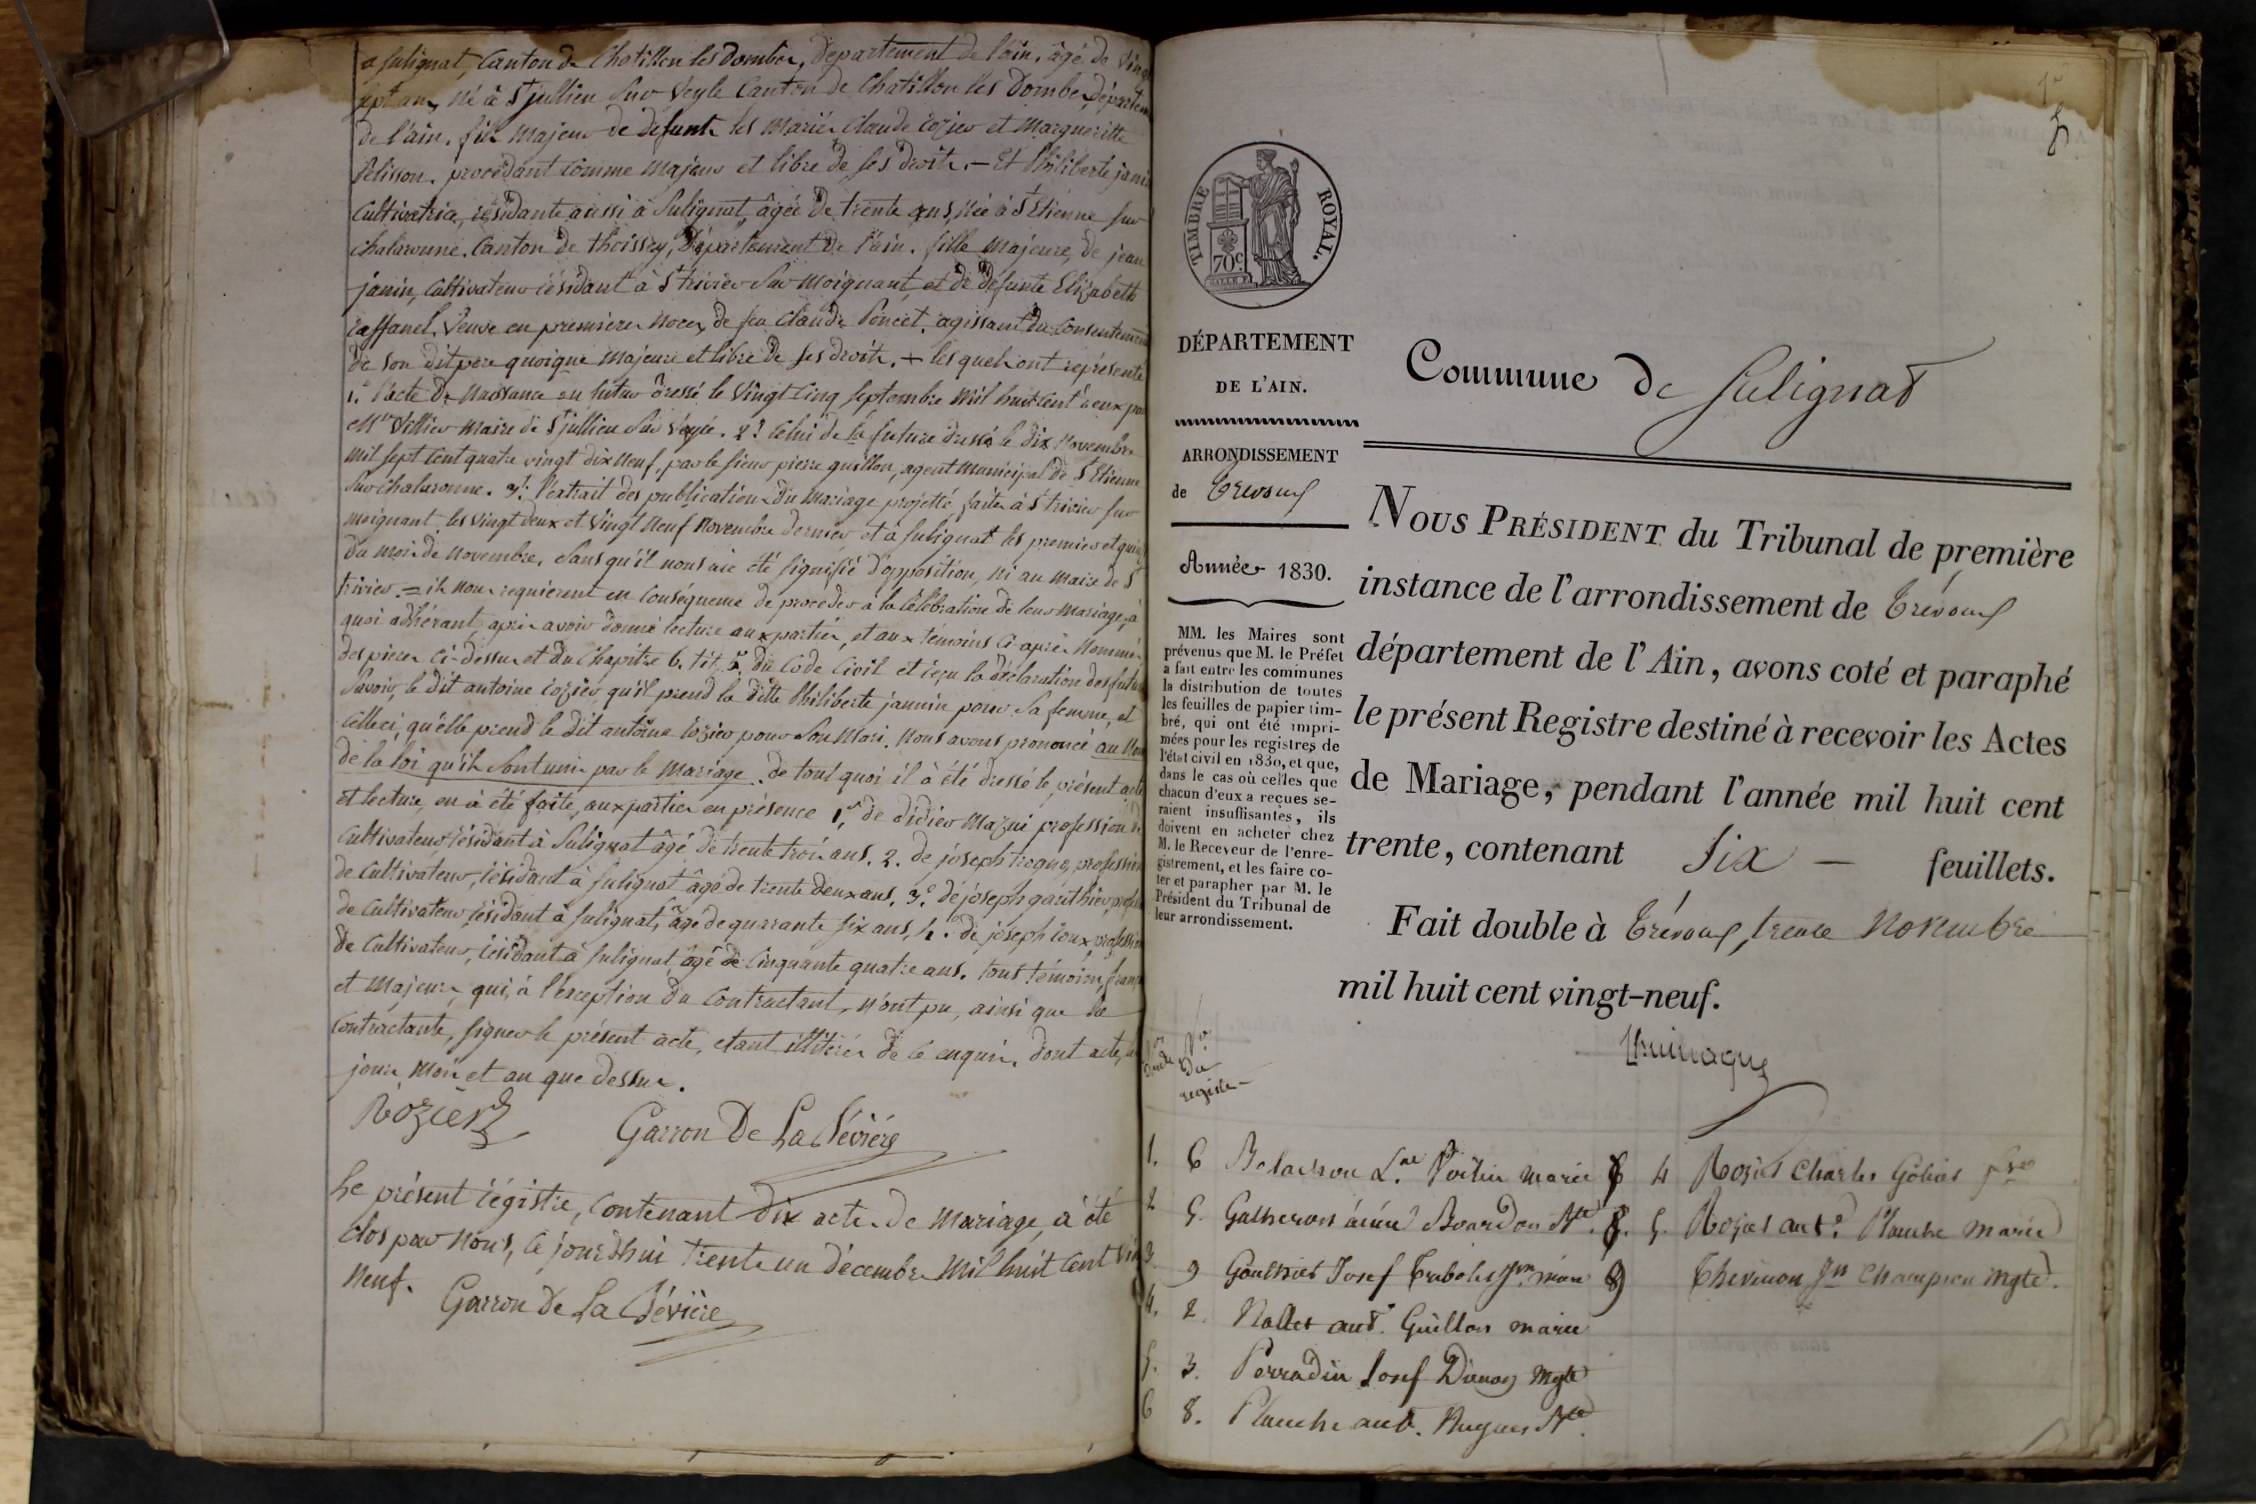 a Sulignat, Canton de Chatillon les Dombes, Département de l'ain, âgé de Vingt
sept ans, né à St jullien Sur Veyle Canton de Chatillon les Dombes, départem
de l'ain, fils majeur de defunts les mariés Claude rozier et Margueritte
Pelisson, procédant comme majeur et libre de ses droits. — Et Philiberte janin
Cultivatrice, résidante aussi à Sulignat, âgée de trente ans, née à St Etienne sur
chalaronne, Canton de thoissey, Département de l'ain, fille majeure, de jean
janin, Cultivateur résidant à St trivier Sur Moignant, et de défunte Elizabeth
Veuve en premieres noces, de feu Claude Poncet, agissant du Consentement
de son dit pere quoique majeure et libre de ses droits. + lesquels ont représenté
1.° l'acte de Naissance du futur dressé le Vingt Cinq Septembre mil huit cent deux par
Mr Villier maire de St jullien Sur Veyle. 2.° Celui de la future dressé le dix Novembre
mil sept cent quatre vingt dix neuf, par le sieur pierre guillon, agent municipal de St Etienne
Sur Chalaronne. 3.° l'extrait des publications du mariage projetté, faites à St trivier sur
moignant les vingt deux et vingt neuf Novembre dernier et à Sulignat les premier et quin
du mois de novembre, Sans qu'il nous aie été signifié d'opposition, ni au maire de St
trivier. = ils nous requierent en Conséquence de procéder à la Célébration de leur mariage, à
quoi adhérant, après avoir donné lecture aux parties, et aux témoins Ci-après Nommés
des pieces Ci-dessus et du Chapitre 6. tit. 5. du Code Civil et reçu la déclaration des futurs
Savoir, le dit antoine rozier qu'il prend la ditte Philiberte jannin pour Sa femme, et
Celle ci, qu'elle prend le dit antoine rozier pour Son Mari. Nous avons prononcé au Nom
de la loi qu'ils Sont unis par le mariage. de tout quoi il à été dressé le présent acte
et lecture en à été faite, aux parties en présence 1.er de didier Mazui profession de
Cultivateur résidant à Sulignat âgé de trente trois ans. 2. de joseph profession
de Cultivateur, résidant à Sulignat âgé de trente deux ans, 3.° de joseph gauthier, profes
de Cultivateur, résidant à Sulignat, âgé de quarante six ans, 4. de joseph roux, profession
de Cultivateur, résidant à Sulignat, âgé de Cinquante quatre ans. tous témoins, français
et majeurs, qui, à l'exception du Contractant, n'ont pu, ainsi que la
Contractante, signer le présent acte, etant illitérés de ce enquis. dont acte, les
jour, mois et an que dessus.
Rozier
Garron De La Bévière
Le présent régistre, Contenant dix actes de Mariage, à été
Clos par Nous, Ce jourd'hui trente un décembre Mil huit Cent Vin
Neuf.
Garron De La Bévière
TIMBRE ROYAL.
70c
DÉPARTEMENT
DE L'AIN.
ARRONDISSEMENT
de Trévoux
Année 1830.
MM. les Maires sont
prévenus que M. le Préfet
a fait entre les communes
la distribution de toutes
les feuilles de papier tim-
bré, qui ont été impri-
mées pour les registres de
l'état civil en 1830, et que,
dans le cas où celles que
chacun d'eux a reçues se-
raient insuffisantes, ils
doivent en acheter chez
M. le Receveur de l'enre-
gistrement, et les faire co-
ter et parapher par M. le
Président du Tribunal de
leur arrondissement.
Commune de Sulignat
NOUS PRÉSIDENT du Tribunal de première
instance de l'arrondissement de Trévoux
département de l'Ain, avons coté et paraphé
le présent Registre destiné à recevoir les Actes
de Mariage, pendant l'année mil huit cent
trente, contenant Six — feuillets.
Fait double à Trévoux, trente Novembre
mil huit cent vingt-neuf.
No Du registre
1. 6 Belachon Marie
2 5. Gatheron Bourdon
3. 9 Gouthier Josef
4. 2. Nallet ant. Guillon marie
5. 3. Perradin Josef Mgte
6 8. Planche ant.
4 Rozier Charles
5. Rozier ant. Planche marie
Thevenon Jn Champion Mgte.